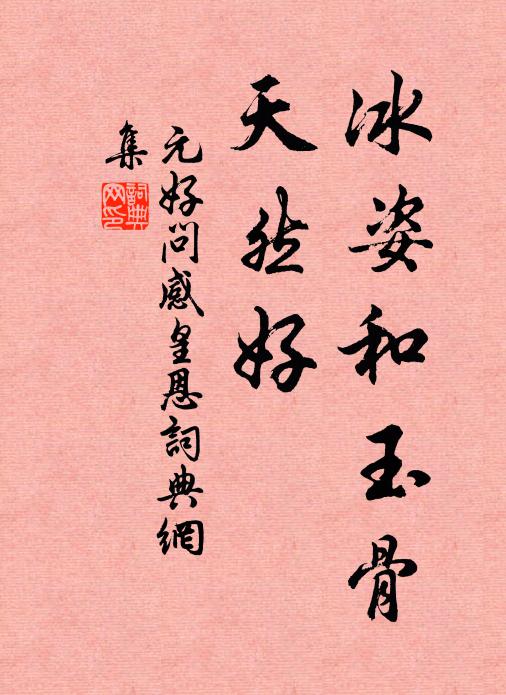 冰姿和玉骨
天然好
元好问感皇恩詞典網
集
詞典网印